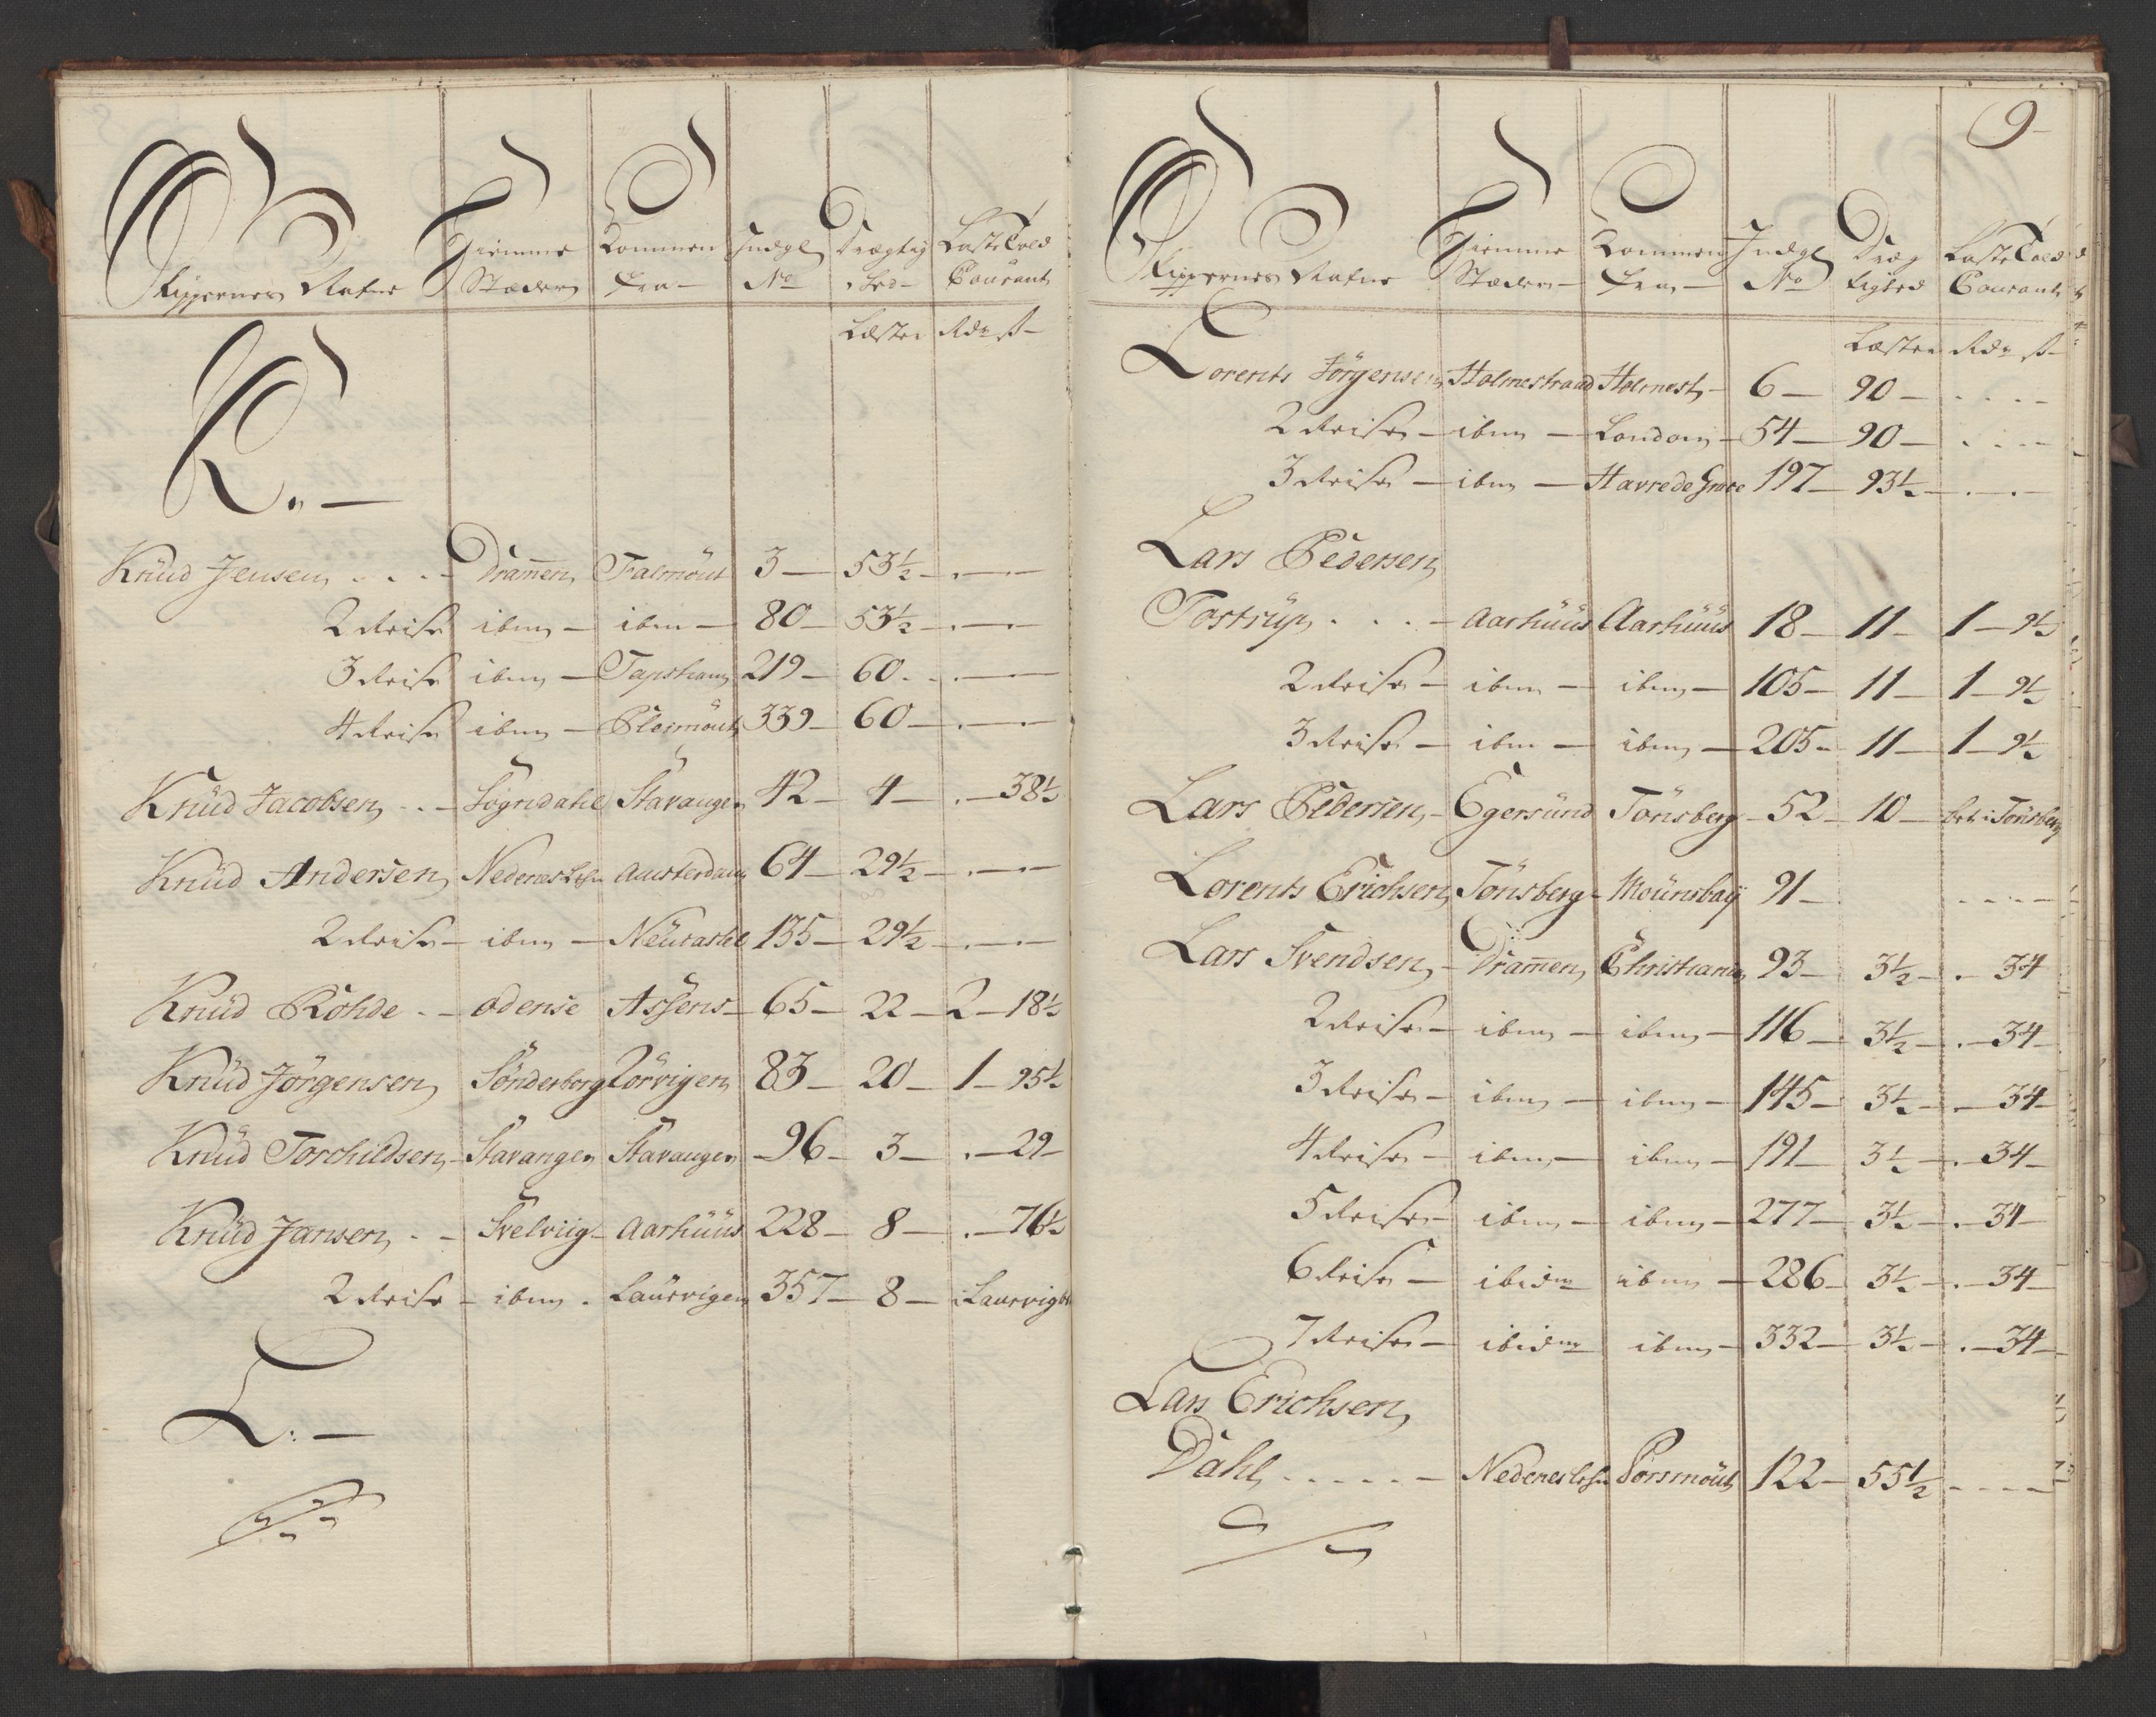 Skippernes Nafne Hiemme Stæder Kommen Fra Indgl No Drægtig hed Læste Told Courant
Læster Rdr s
K.
Knüd Jensen Dramen Falmöut 3 53½
2 Reise ibm ibm 80 53½
3 Reise ibm Tapsham 219 60
4 Reise ibm Pleimöut 339 60
Knüd Jacobsen Sögndahl Stavangen 42 4 38½
Knüd Andersen Nedenes Lehn Amsterdam 64 29½
2 Reise ibm Neucastel 135 29½
Knüd Rohde odense Assens 65 22 2 18½
Knüd Jörgensen Sönderborg Lörvigen 83 20 1 95½
Knüd Torchildsen Stavangen Stavangen 96 3 29
Knüd Jansen Svelviig Aarhüüs 228 8 76½
2 Reise ibm Laürvigen 357 8 i Laurvig
L.
9
Skippernes Nafne Hiemme Stæder Kommen Fra Indgl No Dræg tighed Læste Told Courant
Læster Rdr s
Lorents Jörgensen Holmestrand Holmest 6 90
2 Reise ibm London 54 90
3 Reise ibm Havre de Grace 197 93½
Lars Pedersen
Tostrüp Aarhüüs Aarhüüs 18 11 1 9½
2 Reise ibm ibm 105 11 1 9½
3 Reise ibm ibm 205 11 1 9½
Lars Pedersen Egersünd Tönsberg 52 10 bet: i Tönsberg
Lorents Erichsen Tönsberg Moünsbaÿ 91
Lars Svendsen Dramen Christiania 93 3½ 34
2 Reise ibm ibm 116 3½ 34
3 Reise ibm ibm 145 3½ 34
4 Reise ibm ibm 191 3½ 34
5 Reise ibm ibm 277 3½ 34
6 Reise ibidm ibm 286 3½ 34
7 Reise ibidm ibm 332 3½ 34
Lars Erichsen
Dahl Nedenes Lehn Porsmöut 122 55½